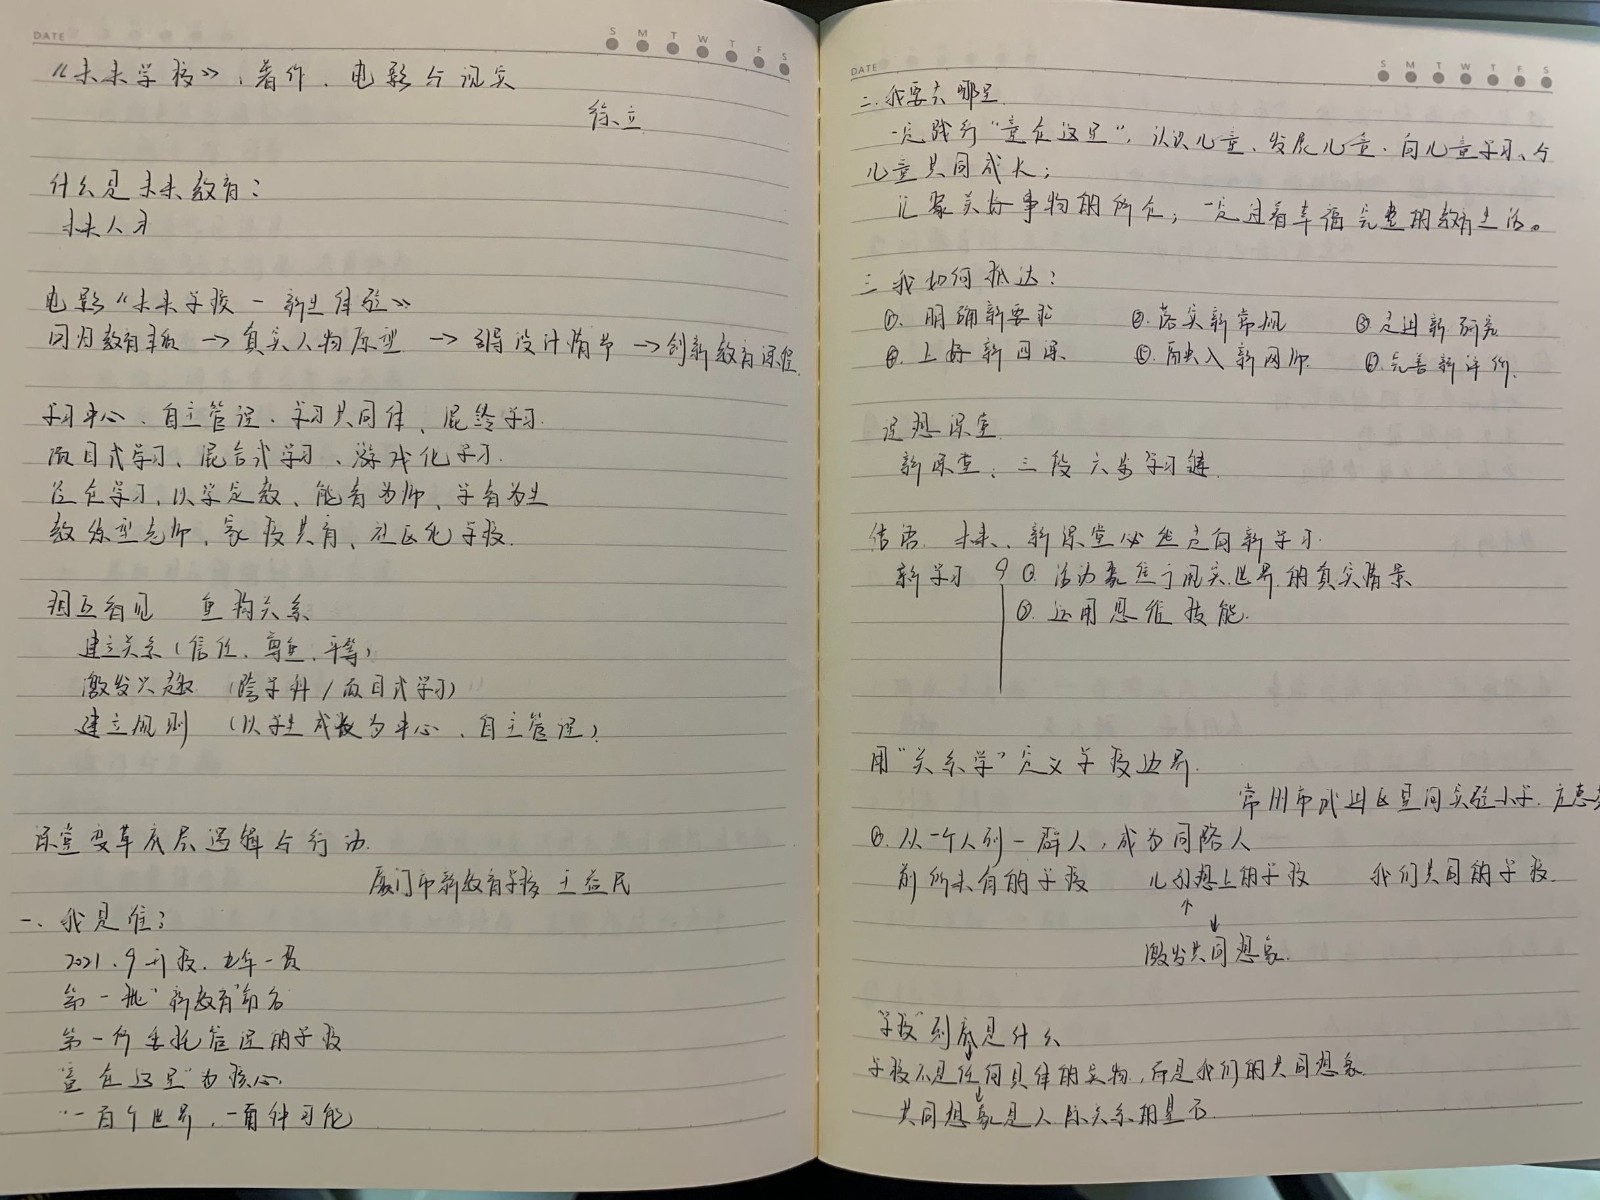 DATE
S M T W T F S
《未来学校》：著作、电影与现实
徐立
什么是未来教育？
未来人才
电影《未来学校－新生体验》
回归教育 → 真实人物原型 → 引导设计情节 → 创新教育课程
学习中心、自主管理、学习共同体、混龄学习
项目式学习、混合式学习、游戏化学习.
泛在学习、以学定教、能者为师、学者为生
教练型老师、家校共育、社区化学校.
相互看见 重构关系
建立关系（信任、尊重、平等）
激发兴趣（跨学科/项目式学习）
建立规则（以学生成长为中心、自主管理）
课堂变革底层逻辑与行动.
厦门市新教育学校 王益民
一、我是谁？
2021.9开校.九年一贯
第一批“新教育”命名
第一所委托管理的学校
“童在这里”为核心.
一百个世界，一百种可能
DATE
S M T W T F S
二.我要去哪里.
一定践行“童在这里”，认识儿童、发展儿童、向儿童学习、与
儿童共同成长；
汇聚美好事物的所在；一定过着幸福完整的教育生活。
三 我如何抵达：
①.明确新要求 ②.落实新常规 ③走进新研究
④.上好新四课 ⑤.融入新网师. ⑥.完善新评价.
理想课堂.
新课堂：三段六步学习链.
结语. 未来、新课堂必然走向新学习.
新学习 ①.活动聚焦于现实世界的真实情景
②.运用思维技能.
用“关系学”定义学校边界.
常州市武进区星河实验小学.庄惠
①.从一个人到一群人，成为同路人
前所未有的学校 儿童想上的学校 我们共同的学校.
↑
↓
激发共同想象.
“学校”到底是什么
学校不是任何具体的实物，而是我们的共同想象
共同想象是人际关系的基石.